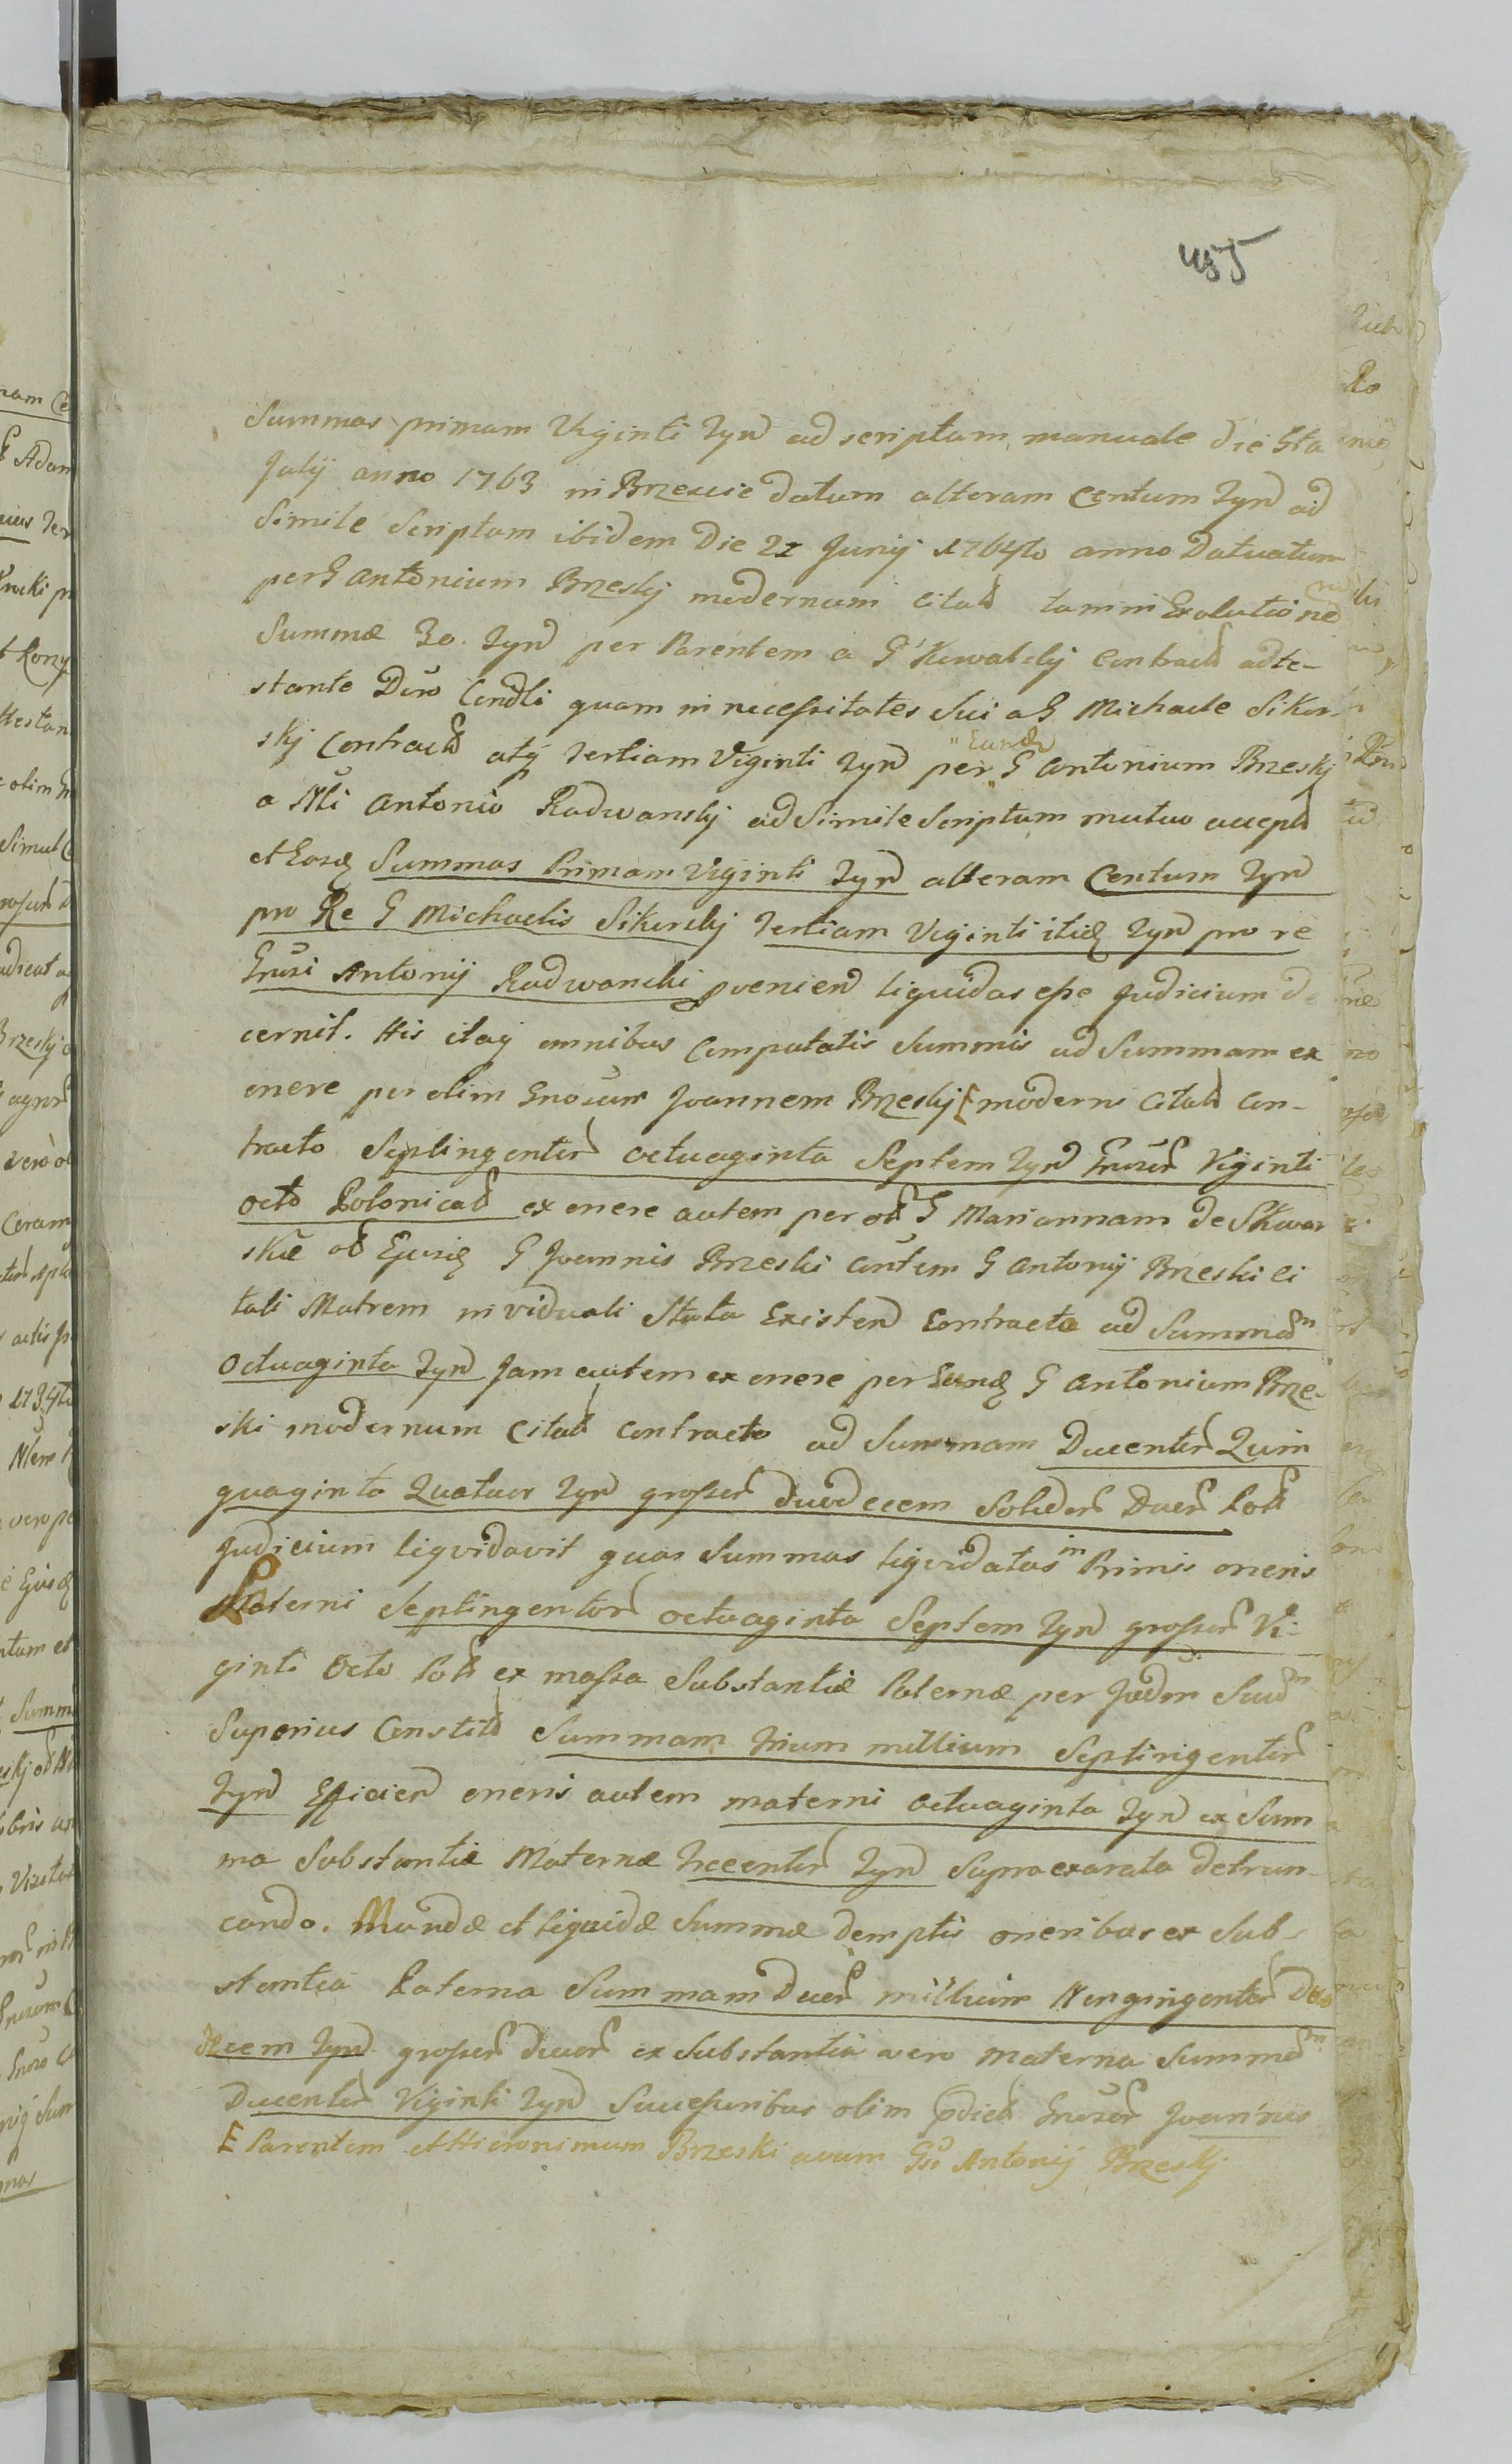 455
Summas primam Viginti Tynf ad scriptum manuale die 6ta
Julij anno 1763 in Brzescie datum alteram Centum Tynf ad
Simile Scriptum ibidem Die 21 Junij 1764to anno
per G Antonium Brzeskj modernum Citat tam in Exolutione
Summæ 30. Tynf per Parentem a G Kowalskj Contract adte-
stante quam in necessitates Sui a G Michaele Sikor-
skj Contract atq tertiam Viginti Tynf per G Antonium Brzeskj
Eund
a Nli Antonio Radwanskj ad Simile Scriptum mutuo accept
et Easq Summas Primam Viginti Tynf alteram Centum Tynf
pro Re G Michaelis Sikorskj Tertiam Viginti itid Tynf pro re
Grosi Antonij Radwanski pvenien liquidas esse Judicium de
cernit. His itaq omnibus Computatis Summis ad Summam ex
onere per olim Gnosum Joannem Brzeskj [ moderni Citati con-
tracto Septingentor octuaginta Septem Tynf Grosor Viginti
octo Polonical ex onere autem per G Mariannam de Skwar
skie G Joannis Brzeski G Antonij Brzeski Ci
tati Matrem in viduali Statu Existen Contracto ad Summam
Octuaginta Tynf Jam autem ex onere per Eund G Antonium Brze-
ski modernum Citat contracto ad Summam Ducentor Quin
quaginta Quatuor Tynf grossor duodecem Solidor Duor Pol
Judicium liqvidavit quas Summas liqvidatas in Primis oneris
Paterni Septingentor octuaginta Septem Tynf grossor Vi-
ginti Octo Pol ex massa Substantiæ Paternæ per Judm Suum
Superius Constit Summam trium millium Septingentor
Tynf Efficien oneris autem materni octuaginta Tynf ex Sum
ma Substantiæ Maternæ Trecentor Tynf Supra exarata detrun-
cando. Mundæ et liquidæ Summæ demptis oneribus ex Sub-
stantia Paterna Summam Duor millium Nongingentor Duo
decem Tynf grossor duor ex Substantia vero Materna Summam
Ducentor Viginti Tynf Sucessoribus olim pdict Gnosor Joannis
[ Parentem et Hieronimum Brzeski avum Antonij Brzeskj